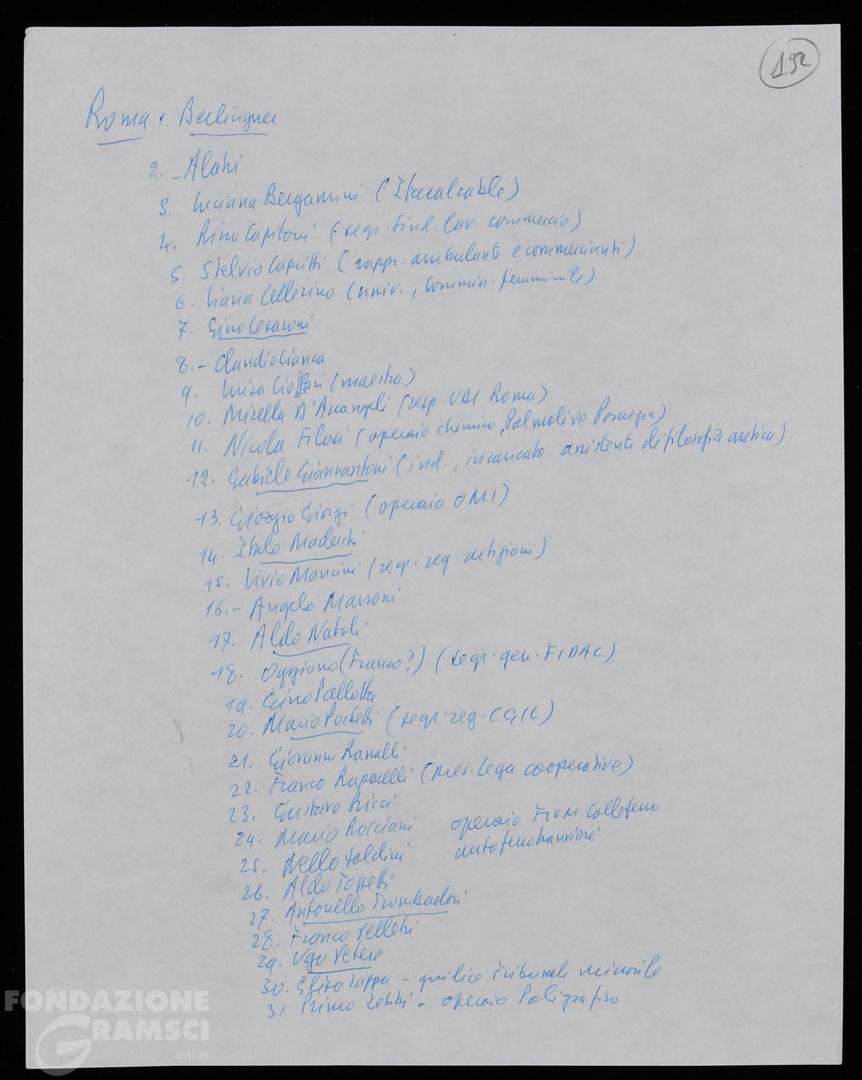 192
Roma e Berlinguer
2. - Alatri
3. Luciana Bergamini (Italcable)
4. Rino Capitoni (segr. sind. lav. commercio)
5. Stelvio Capritti (rappr. ambulanti e commercianti)
6. Liana Cellerino (univ., commiss. femminile)
7. Gino Cesaroni
8. - Claudio Cianca
9. Luisa (maestra)
10. Mirella D'Arcangeli (resp. UDI Roma)
11. Nicola Filosi (operaio chimico, Palmolive Pomezia)
12. Gabriele Giannantoni (ind., incaricato assistente di filosofia antica)
13. Giorgio Giorgi (operaio OMI)
14. Italo Maderchi
15. Livio Mancini (segr. reg. artigiani)
16. - Angelo Marroni
17. Aldo Natoli
18. Oggiano (Franco?) (segr. gen. FIDAC)
19. Gino Pallotta
20. Mario Pochetti (segr. reg. CGIL)
21. Giovanni Ranalli
22. Franco Raparelli (pres. Lega cooperative)
23. Gustavo Ricci
24. Mario Rosciani operaio Colleferro
25. Nello Soldini autoferrotranviere
26. Aldo Tozzetti
27. Antonello Trombadori
28. Franco Velletri
29. Ugo Vetere
30. Zappa - Tribunale minorile
31 Primo Zebbi - operaio Poligrafico
FONDAZIONE
GRAMSCI
onlus